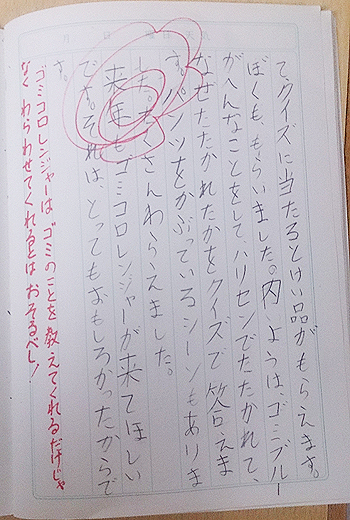 て、クイズに当たるとけい品がもらえます。
ぼくも、もらいました。内ようは、ゴミブルー
がへんなことをして、ハリセンでたたかれて、
なぜたたかれたかをクイズで答えま
す。パンツをかぶっているシーンもありま
した。たくさんわらえました。
来年もゴミコロレンジャーが来てほしい
です。それは、とってもおもしろかったからで
す。
ゴミコロレンジャーは、ゴミのことを教えてくれるだけじゃ
なく、わらわせてくれるとは、おそるべし!